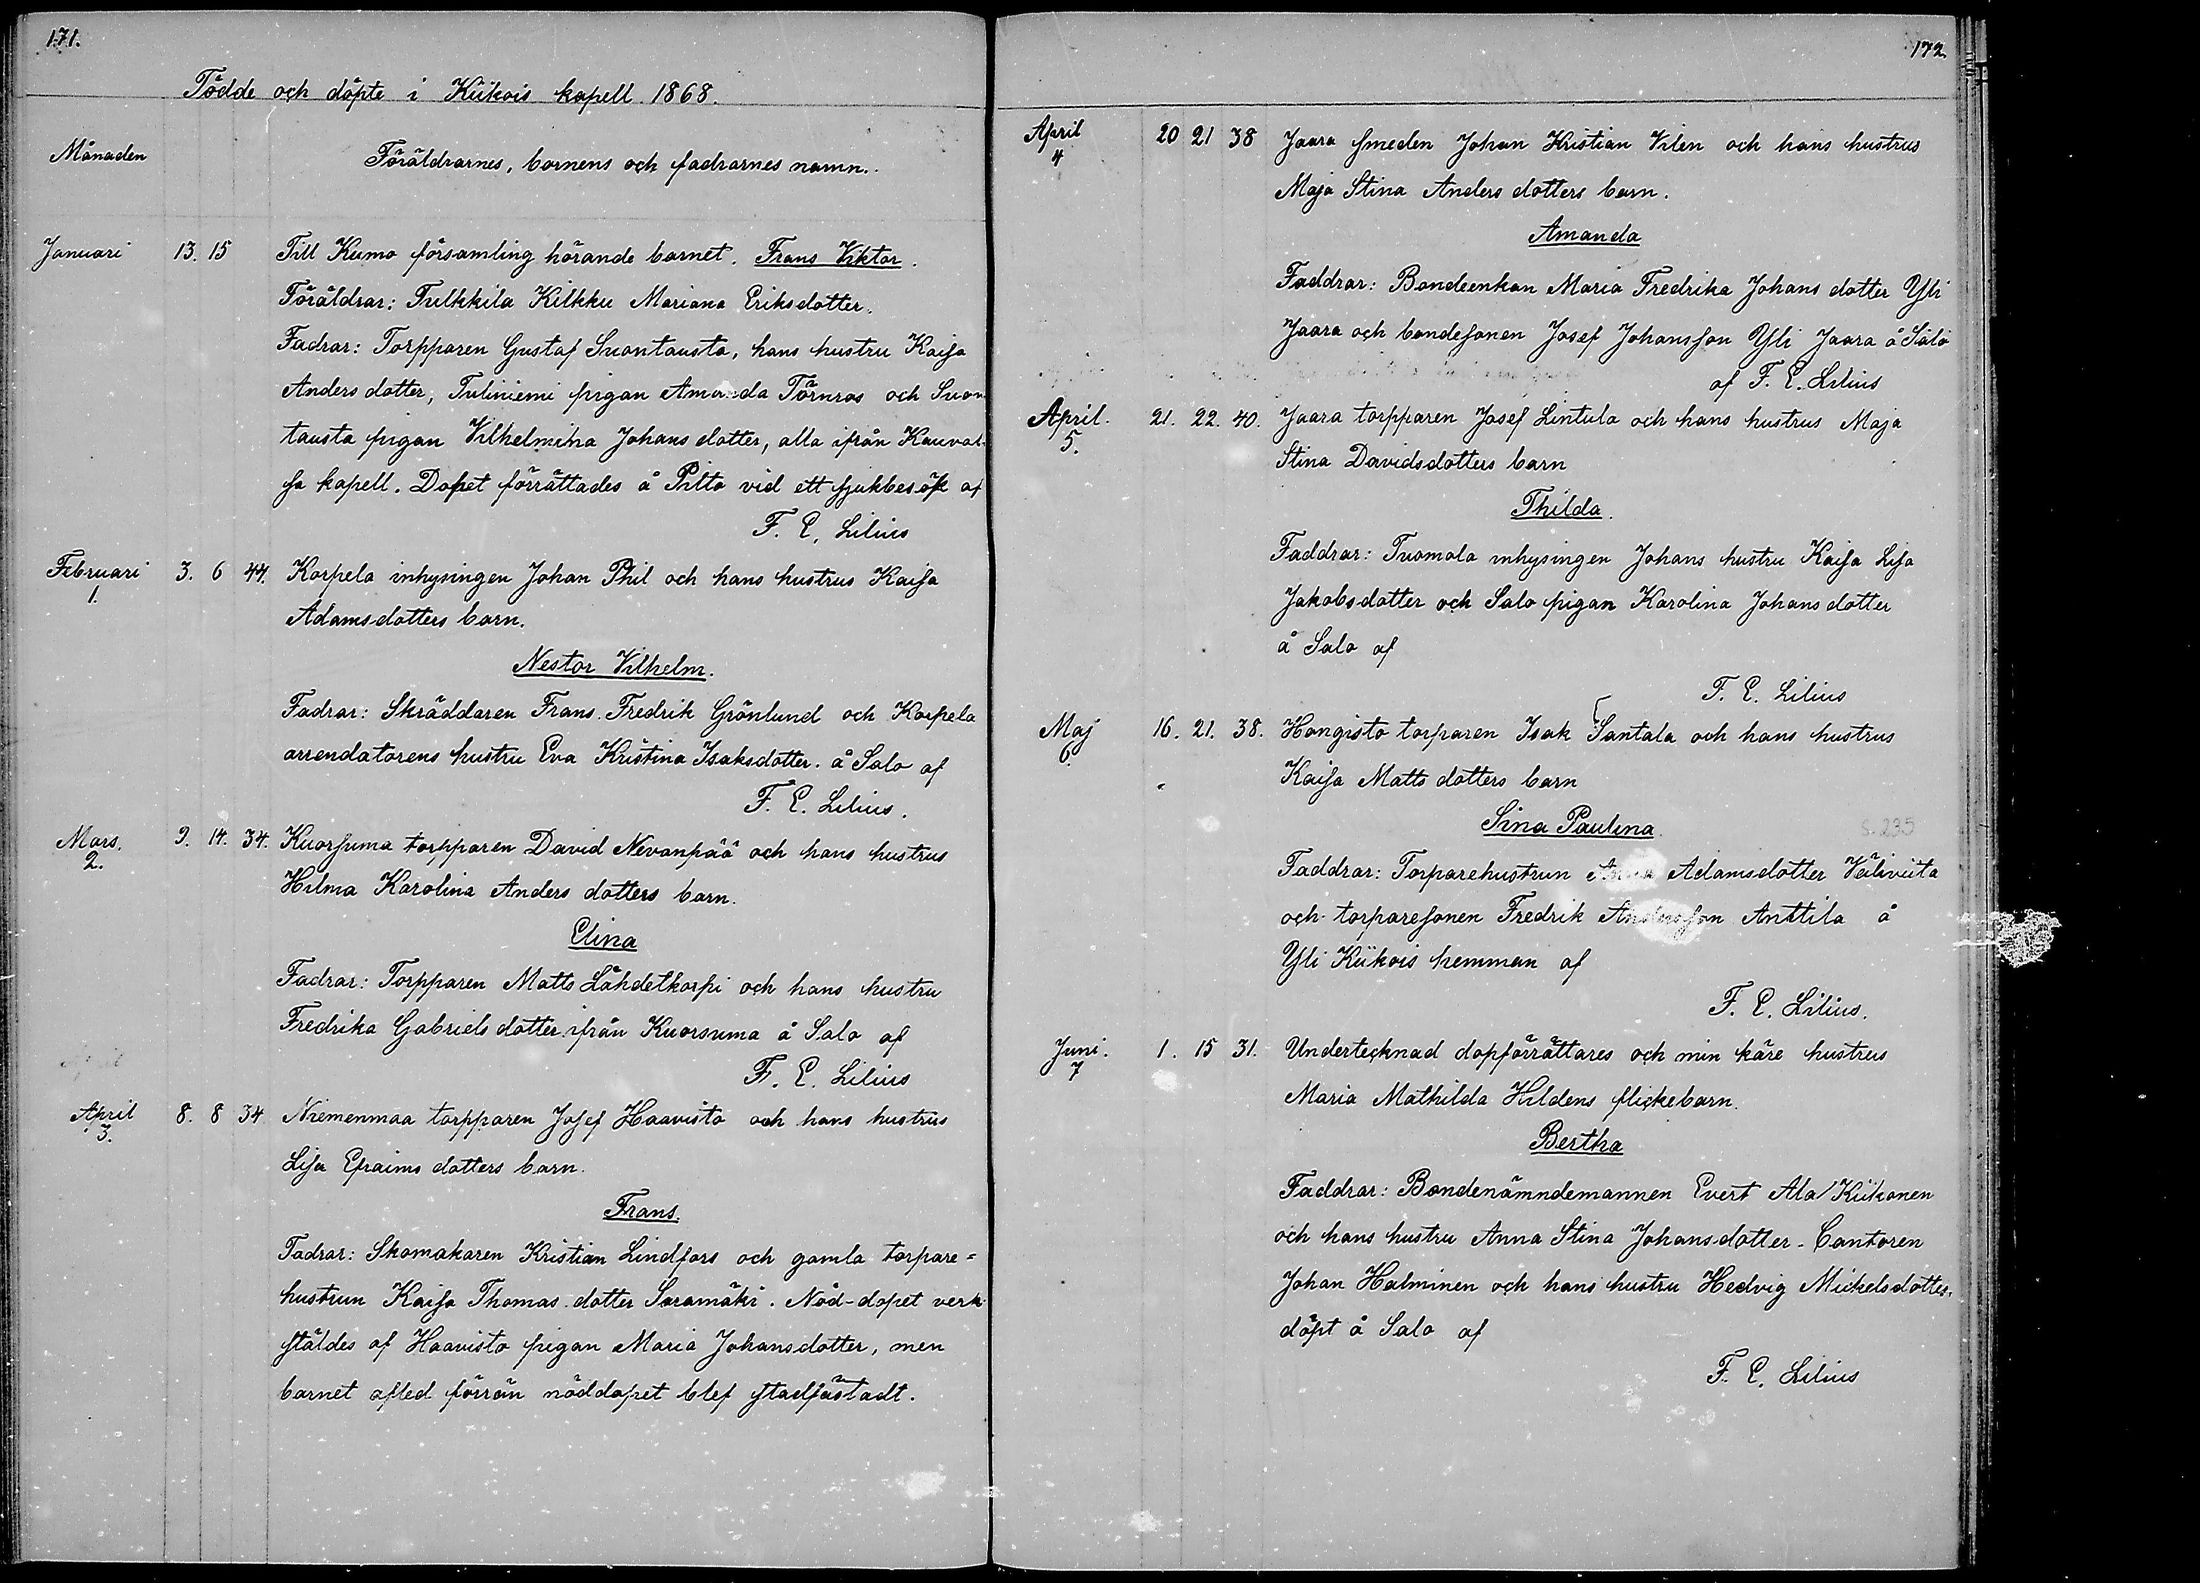 171.
Födde och döpte i Kiikois kapell 1868.
Månaden
Föräldrarnes, barnens och fadrarnes namn.
Januari 13. 15 Till Kumo församling hörande barnet. Frans Viktor.
Föräldrar: Tulkkila Kilkku Mariana Eriksdotter.
Fadrar: Torpparen Gustaf Suontausta, hans hustru Kaisa
Anders dotter, Tuliniemi pigan Amanda Törnros och Suon
tausta pigan Vilhelmina Johans dotter, alla ifrån Kauvat-
sa kapell. Dopet förrättades å Piltto vid ett sjukbesök af
F. E. Lilius
Februari 3. 6 44. Korpela inhysingen Johan Phil och hans hustrus Kaisa
1.
Adamsdotters barn.
Nestor Vilhelm.
Fadrar: Skräddaren Frans Fredrik Grönlund och Korpela
arrendatorens hustru Eva Kristina Isaksdotter. å Salo af
F. E. Lilius.
Mars. 9. 14. 34. Kuorsuma torpparen David Nevanpää och hans hustrus
2.
Hilma Karolina Anders dotters barn.
Elina
Fadrar: Torpparen Matts Lähdetkorpi och hans hustru
Fredrika Gabriels dotter ifrån Kuorsuma å Salo af
F. E. Lilius
April 8. 8 34 Niemenmaa torpparen Josef Haavisto och hans hustrus
3.
Lisa Efraims dotters barn.
Frans.
Fadrar: Skomakaren Kristian Lindfors och gamla torpare=
hustrun Kaisa Thomas dotter Saramäki. Nöd-dopet verk-
stäldes af Haavisto pigan Maria Johansdotter, men
barnet afled förrän nöddopet blef stadfästadt.
172.
April 20 21 38 Jaara smeden Johan Kristian Vilen och hans hustrus
4
Maja Stina Anders dotters barn.
Amanda
Faddrar: Bondeenkan Maria Fredrika Johans dotter Yli
Jaara och bondesonen Josef Johansson Yli Jaara å Salo
af F. E. Lilius
April. 21. 22. 40. Jaara torpparen Josef Lintula och hans hustrus Maja
5.
Stina Davidsdotters barn
Thilda.
Faddrar: Tuomola inhysingen Johans hustru Kaisa Lisa
Jakobsdotter och Salo pigan Karolina Johans dotter
å Salo af
F. E. Lilius
Maj 16. 21. 38. Hongisto torparen Isak Santala och hans hustrus
6.
Kaisa Matts dotters barn
Sina Paulina.
S. 235
Faddrar: Torparehustrun Anna Adamsdotter Väliviita
och torparesonen Fredrik Andersson Anttila å
Yli Kiikois hemman af
F. E. Lilius.
Juni. 1. 15 31. Undertecknad dopförrättares och min käre hustrus
7
Maria Mathilda Hildens flickebarn.
Bertha
Faddrar: Bondenämndemannen Evert Ala Kiikonen
och hans hustru Anna Stina Johansdotter - Cantoren
Johan Halminen och hans hustru Hedvig Mickelsdotter.
döpt å Salo af
F. E. Lilius